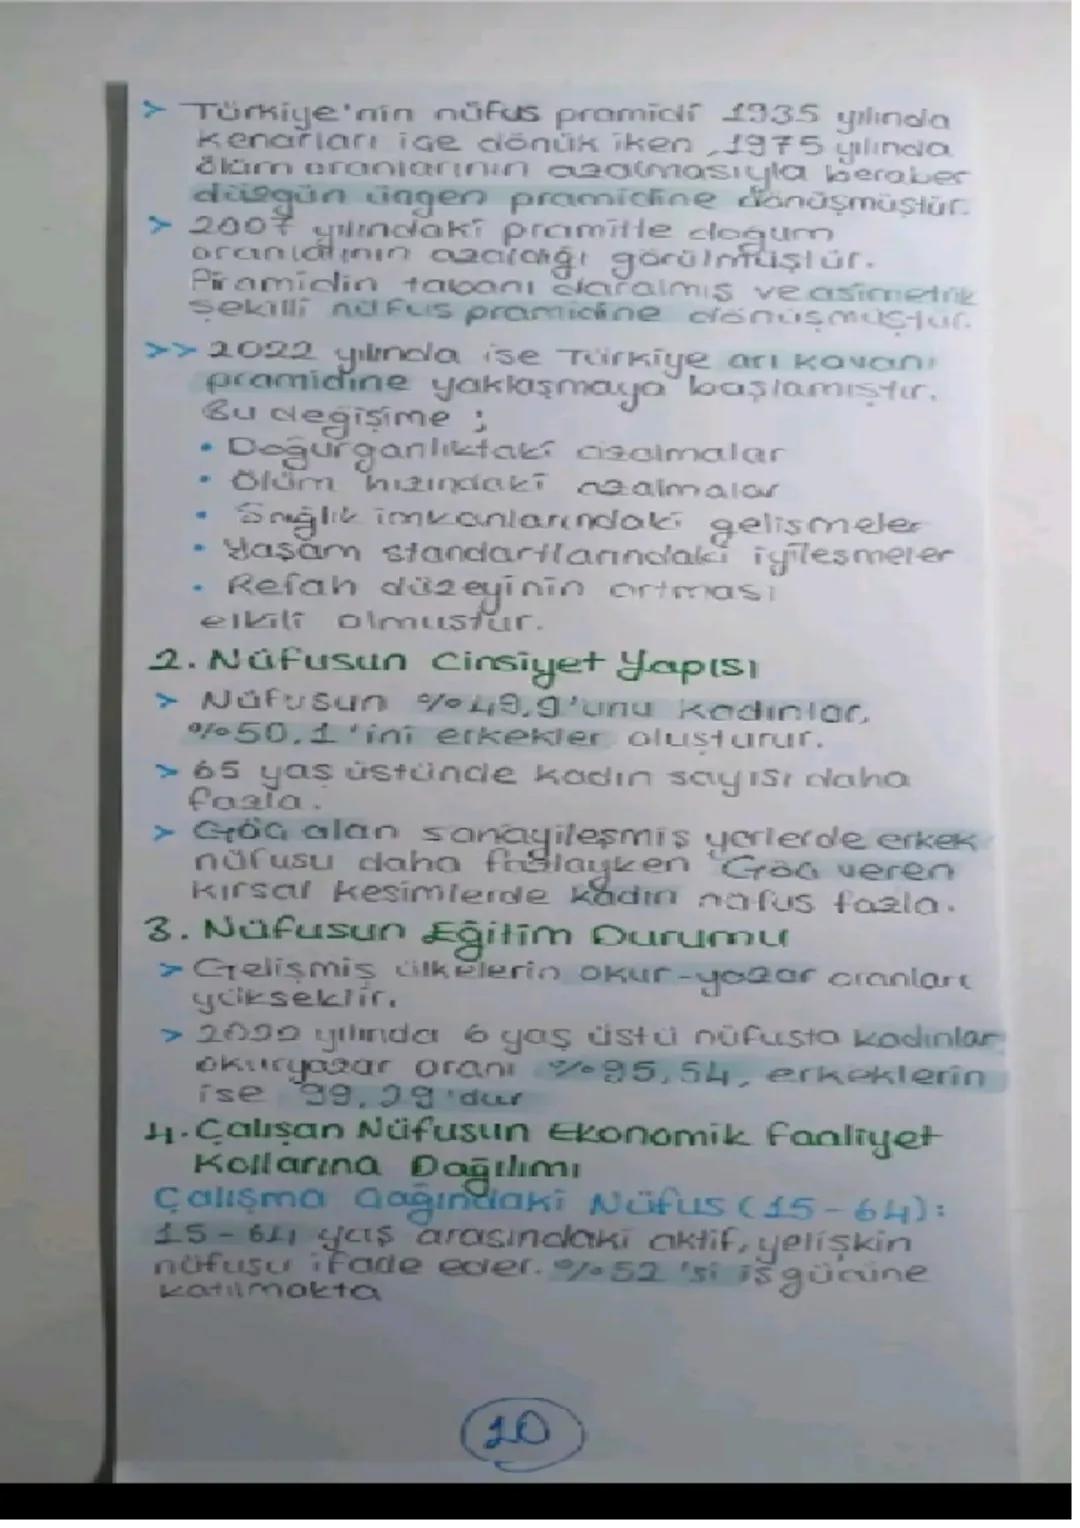 > Türkiye'nin nüfus pramidi 1935 yılında
kenarları içe dönük iken, 1975 yılında
ölüm oranlarının azalmasıyla beraber
düzgün üçgen pramidine dönüşmüştür.
> 2007 yılındaki pramitle doğum
oranlarının azaldığı görülmüştür.
Piramidin tabanı daralmış ve asimetrik
şekilli nüfus pramidine dönüşmüştür.
>> 2022 yılında ise Türkiye arı kovanı
pramidine yaklaşmaya başlamıştır.
Bu değişime ;
• Doğurganlıktaki azalmalar
• Ölüm hızındaki azalmalar
• Sağlık imkanlarındaki gelişmeler
• Yaşam standartlarındaki iyileşmeler
• Refah düzeyinin artması
etkili olmustur.
2. Nüfusun Cinsiyet Yapısı
> Nüfusun %49,9'unu kadınlar,
%50,1'ini erkekler oluşturur.
> 65 yaş üstünde kadın sayısı daha
fazla.
> Göç alan sanayileşmiş yerlerde erkek
nüfusu daha fazlayken Göç veren
kırsal kesimlerde kadın nüfus fazla.
3. Nüfusun Eğitim Durumu
> Gelişmiş ülkelerin okur-yazar oranları
yüksektir.
> yılında 6 yaş üstü nüfusta kadınlar
okuryazar oranı %95,54, erkeklerin
ise 'dur
4. Çalışan Nüfusun Ekonomik Faaliyet
Kollarına Dağılımı
Çalışma Çağındaki Nüfus (15-64):
15-64 yaş arasındaki aktif, yetişkin
nüfusu ifade eder. %52'si iş gücüne
katılmakta
10